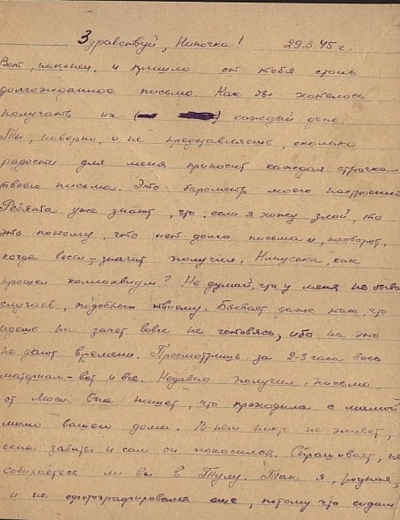 Здравствуй, Ниночка! 29.3.45 г.
Вот, наконец, и пришло от тебя столь
долгожданное письмо. Как бы хотелось
получать их каждый день.
Ты, наверно, и не представляешь, сколько
радости для меня приносит каждая строчка
твоего письма. Это барометр моего настроения.
Ребята уже знают, что, если я хожу злой, то
это потому, что нет долго письма и, наоборот,
когда весел - значит получил. Нинуська, как
прошел коллоквиум? Не думай, что у меня не было
случаев, подобных твоему. Бывает даже так, что
идешь на зачет вовсе не готовясь, ибо на это
не дают времени. Просмотришь за 2-3 часа весь
материал - вот и все. Недавно получил письмо
от Люси. Она пишет, что проходила с мамой
мимо вашего дома. В нем никто не живет,
окна забиты и сам он покосился. Спрашивает, не
собираетесь ли вы в Тулу. Так я, родная,
и не сфотографировался еще, потому что сидим